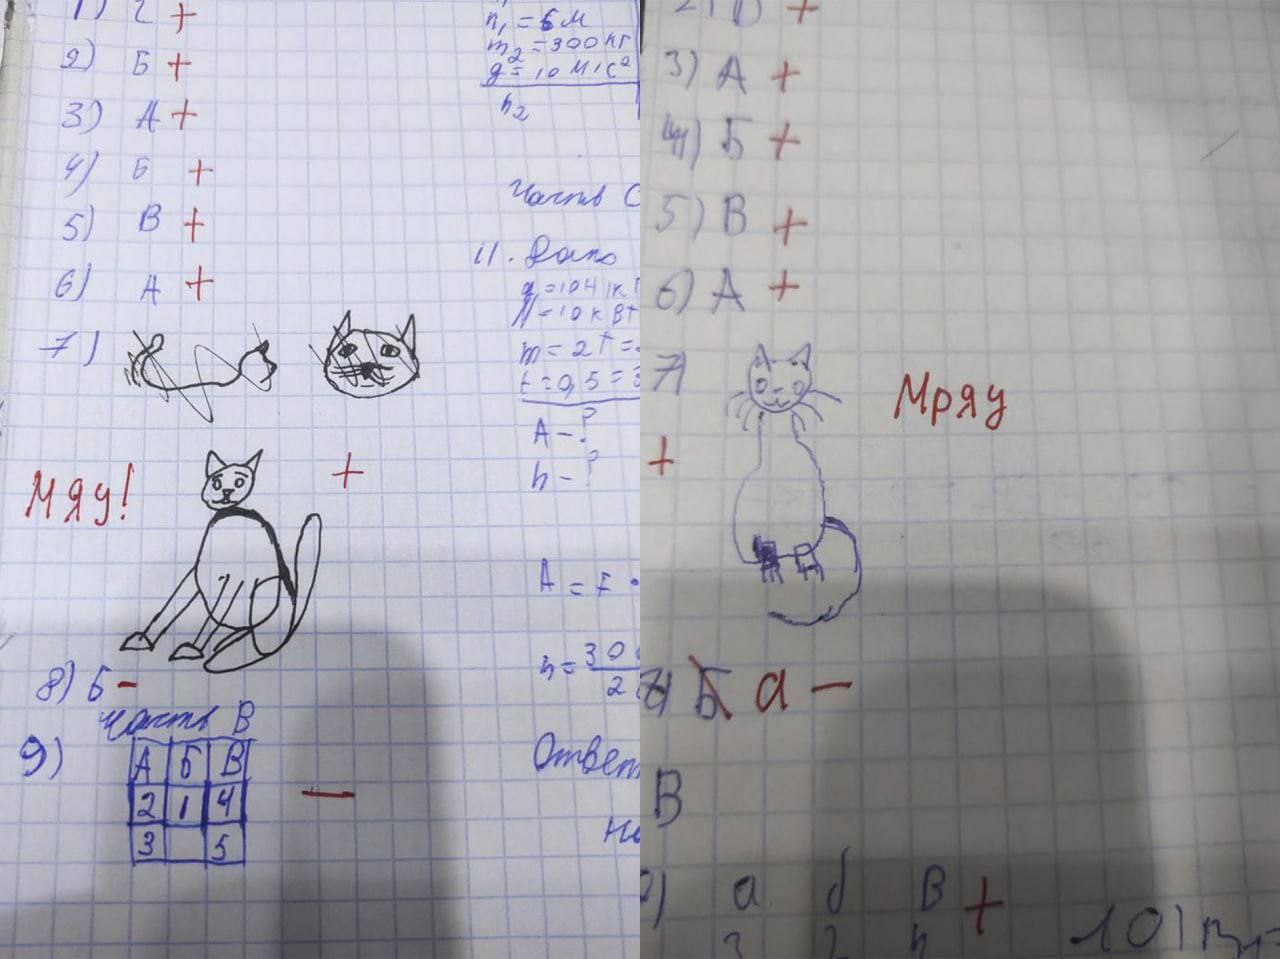 1) Г +
2) Б +
3) А +
4) Б +
5) В +
6) А +
7)
+
Мяу!
8) Б -
Часть В
9)
А Б В
2 1 4
3 5
-
h₁ = 6 м
m₂ = 300 кг
g = 10 м/с²
h₂
Часть С
11. Дано
g = 10 Н/кг
N = 10 кВт
m = 2 т =
t = 0,5 =
А - ?
h - ?
А =
h = 300
2
Ответ
+
3) А +
4) Б +
5) В +
6) А +
7)
+
Мряу
Б а -
В
) а б В +
3 2
10)